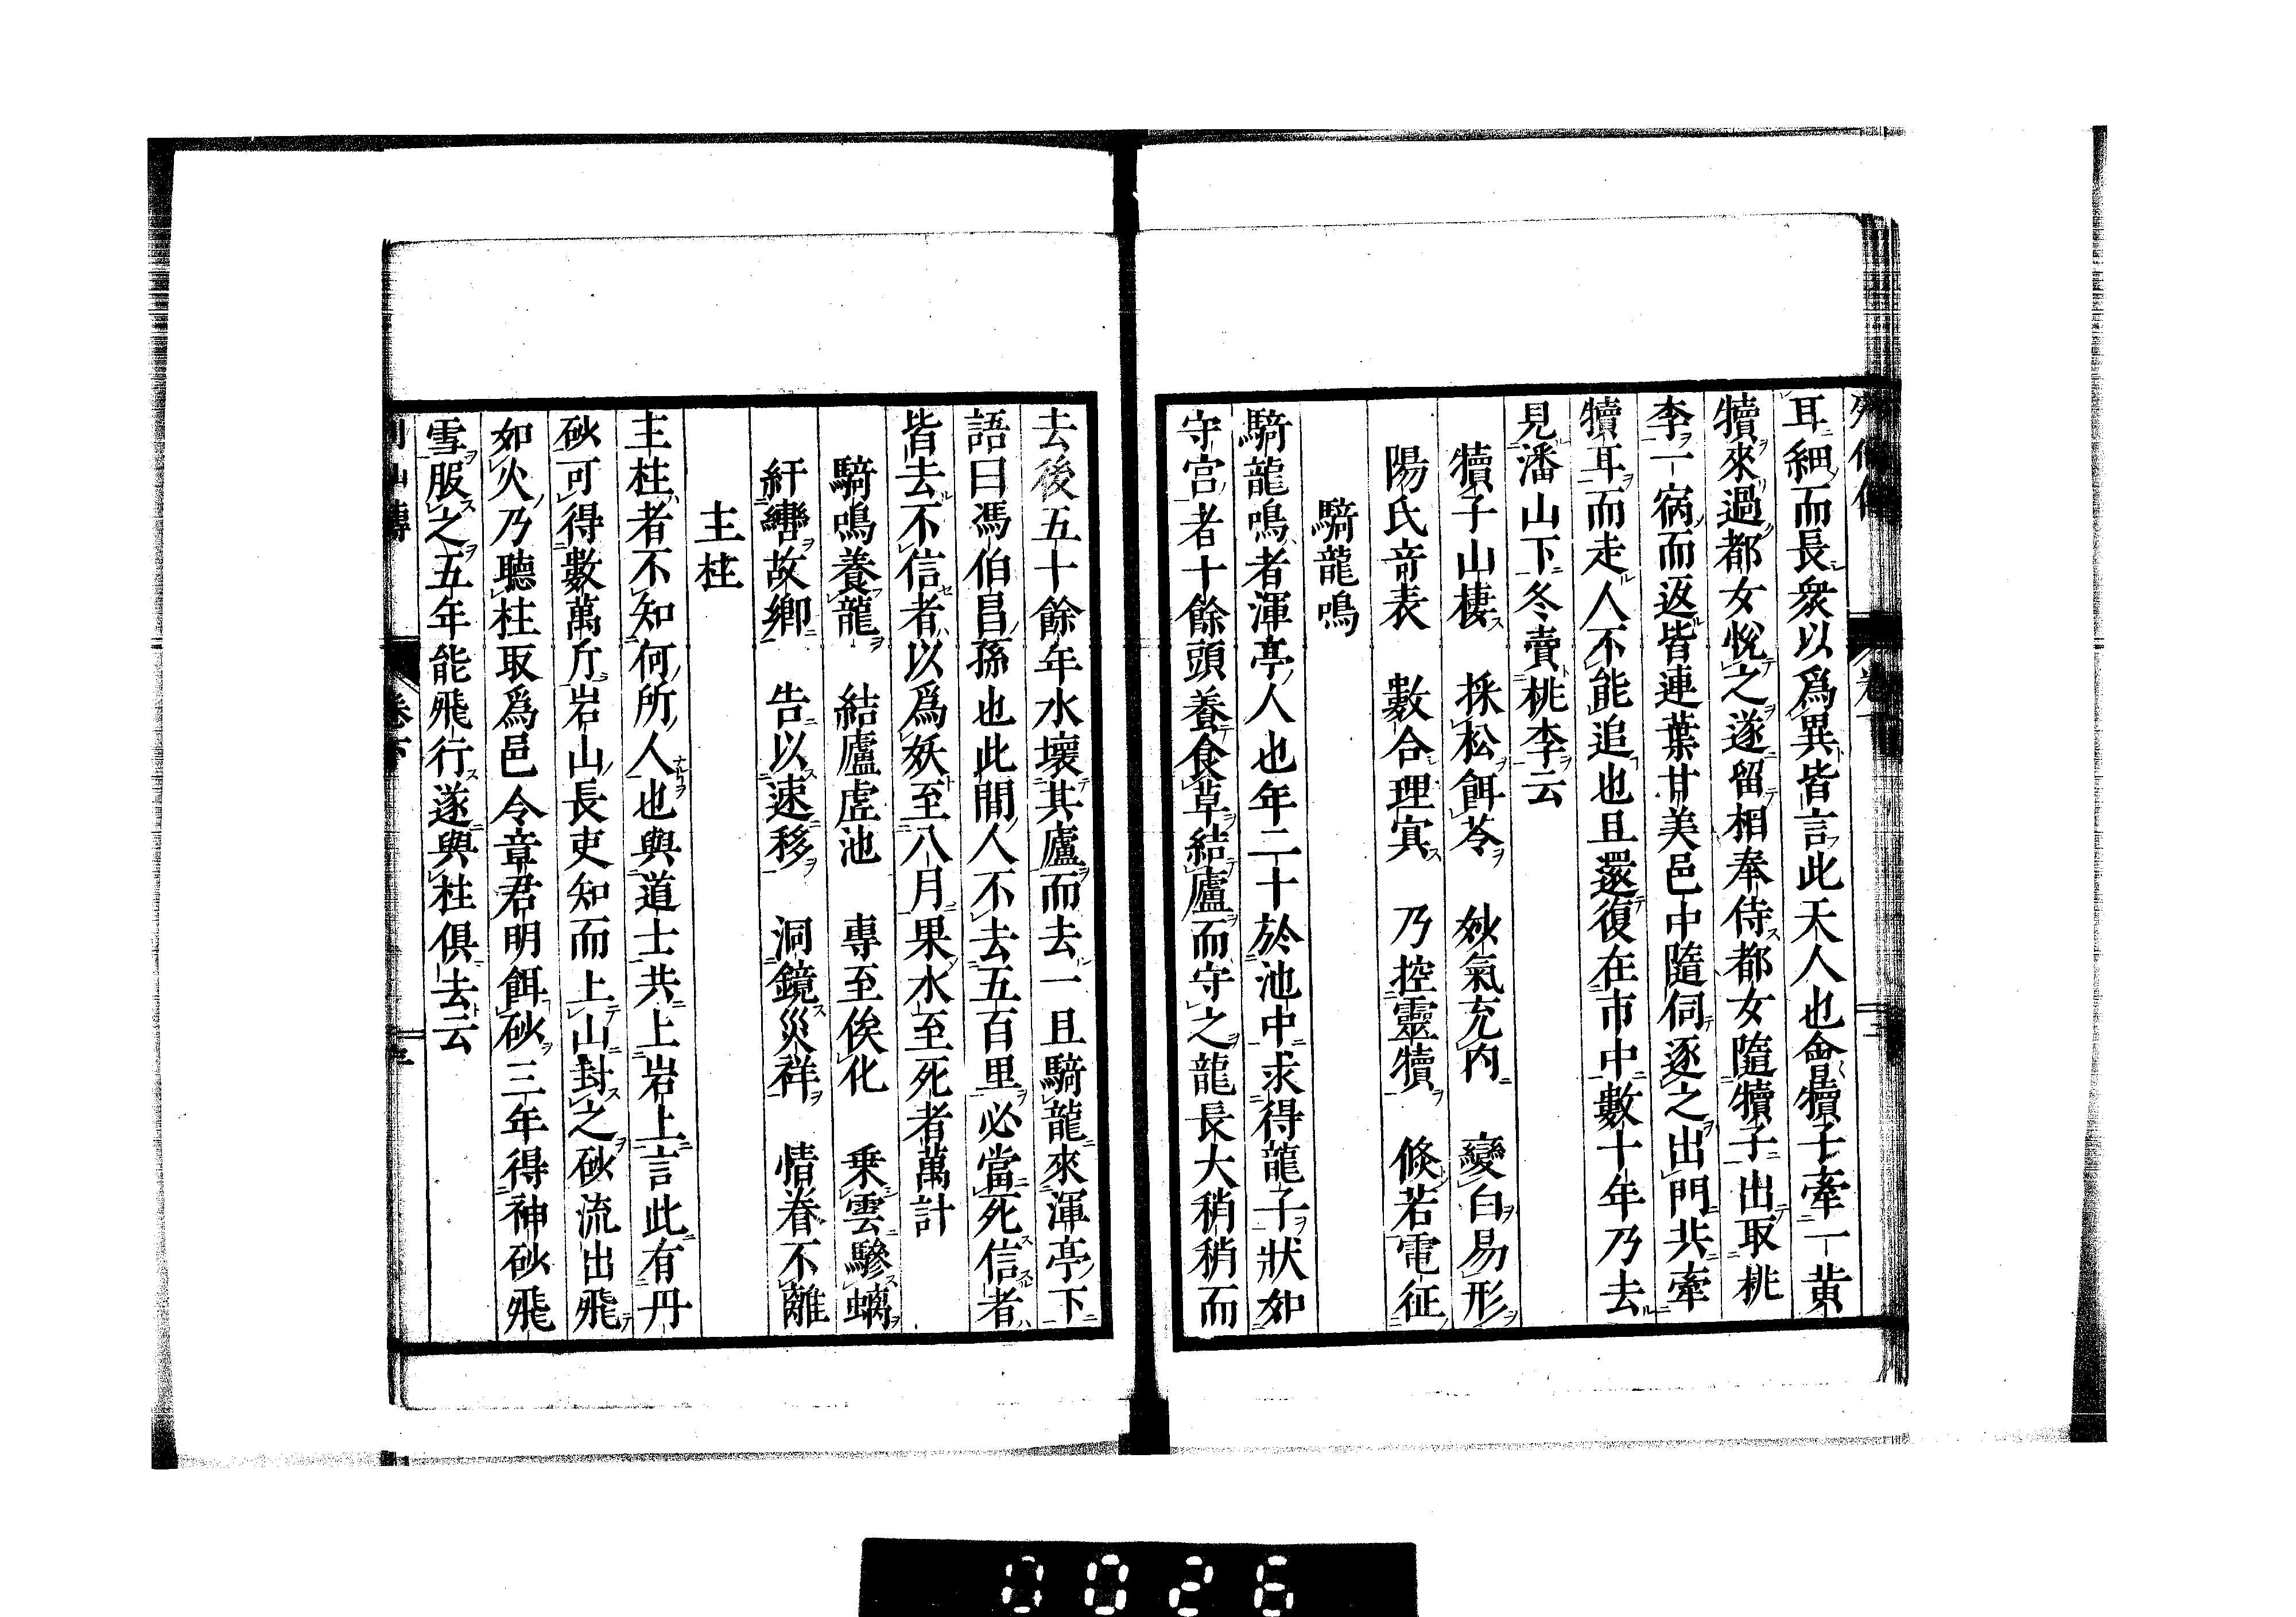 耳細而長衆以爲異皆言此天人也會犢子牽一黄
犢來過都女悅之遂留相奉侍都女隨犢子出取桃
李一宿而返皆連葉甘美邑中隨伺逐之出門共牽
犢耳而走人不能追也且還復在市中數十年乃去
見潘山下冬賣桃李云
犢子山棲 採松餌苓 妙氣充内 變白易形
陽氏奇表 數合理冥 乃控靈犢 倏若電征
騎龍鳴
騎龍鳴者渾亭人也年二十於池中求得龍子狀如
守宮者十餘頭養食草結廬而守之龍長大稍稍而
去後五十餘年水壞其廬而去一旦騎龍來渾亭下
語曰馮伯昌孫也此間人不去五百里必當死信者
皆去不信者以爲妖至八月果水至死者萬計
騎鳴養龍 結廬虚池 專至俟化 乗雲驂螭
紆轡故鄉 告以速移 洞鏡災祥 情眷不離
主柱
主柱者不知何所人也與道士共上岩上言此有丹
砂可得數萬斤岩山長吏知而上山封之砂流出飛
如火乃聽柱取爲邑令章君明餌砂三年得神砂飛
雪服之五年能飛行遂與柱俱去云
卷下
0026